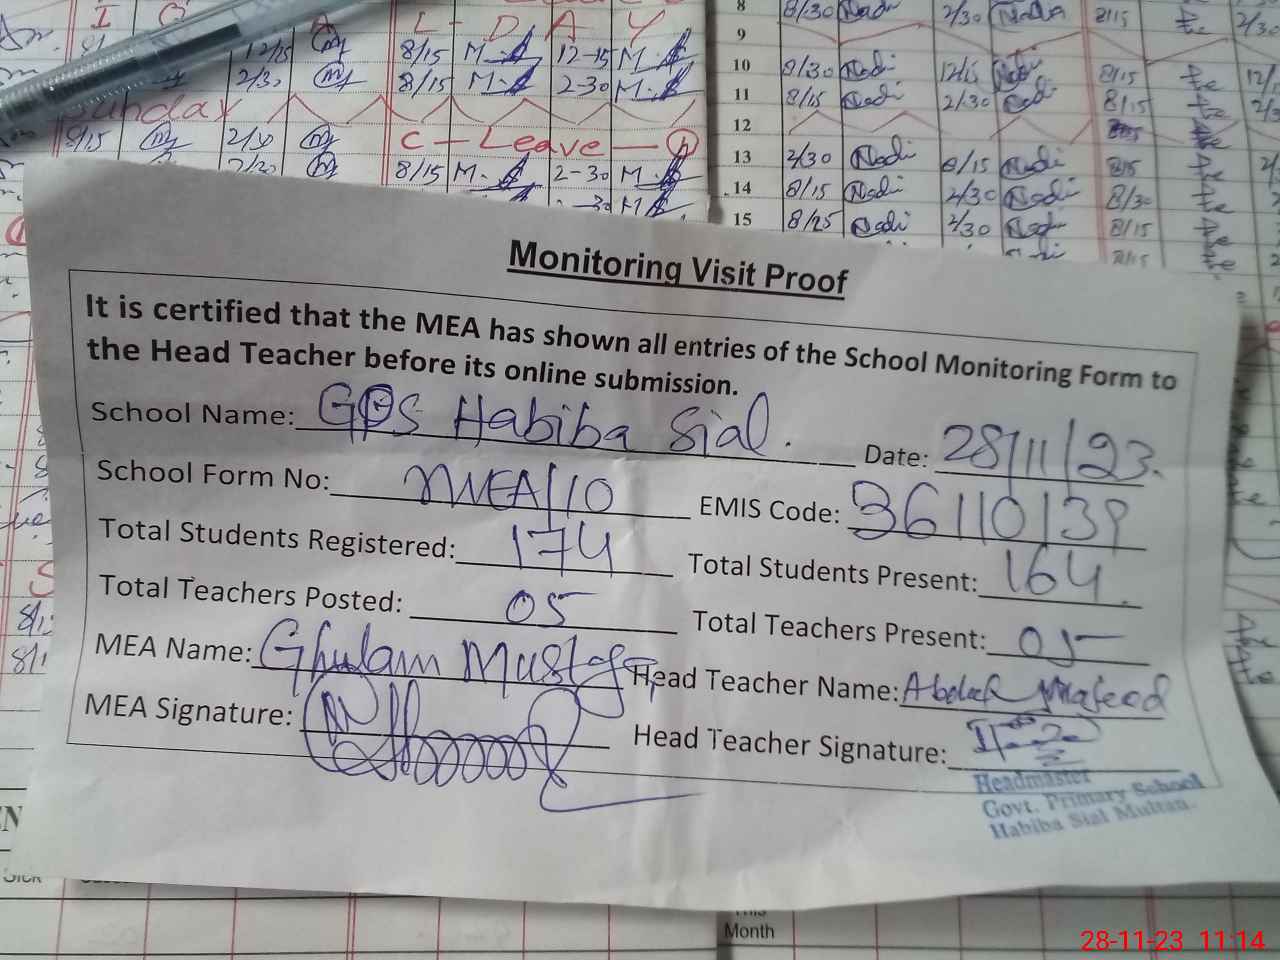 I
L - D A Y
12/15
8/15 M. 12-15 M.
2/30
8/15 M. 2-30 M.
Sunday
8/15 2/30 C - Leave
2/30 8/15 M. 2-30 M.
8 8/30 Nadi 2/30 Nadi 8/15
9
10 8/30 Nadi 12/15 Nadi 8/15
11 8/15 Nadi 2/30 Nadi 8/15
12
13 2/30 Nadi 8/15 Nadi 8/15
14 8/15 Nadi 2/30 Nadi 8/30
15 8/25 Nadi 2/30 Nadi 8/15
8/15
Monitoring Visit Proof
It is certified that the MEA has shown all entries of the School Monitoring Form to
the Head Teacher before its online submission.
School Name: GPS Habiba Sial. Date: 28/11/23.
School Form No: MEA/10 EMIS Code: 36110139
Total Students Registered: 174 Total Students Present: 164
Total Teachers Posted: 05 Total Teachers Present: 05
MEA Name: Ghulam Mustafa Head Teacher Name: Abdul Majeed
MEA Signature: Head Teacher Signature:
Headmaster
Govt. Primary School
Habiba Sial Multan.
This
Month
28-11-23 11:14